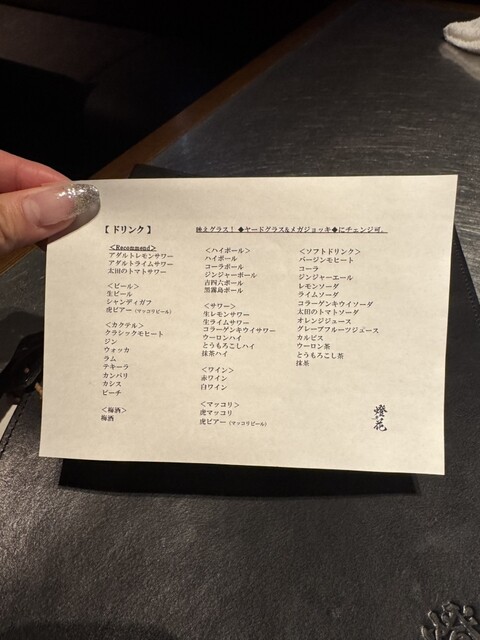 【 ドリンク 】
映えグラス! ◆ヤードグラス&メガジョッキ◆にチェンジ可。
<Recommend>
アダルトレモンサワー
アダルトライムサワー
太田のトマトサワー
<ビール>
生ビール
シャンディガフ
虎ビアー (マッコリビール)
<カクテル>
クラシックモヒート
ジン
ウォッカ
ラム
テキーラ
カンパリ
カシス
ピーチ
<梅酒>
梅酒
<ハイボール>
ハイボール
コーラボール
ジンジャーボール
吉四六ボール
黒霧島ボール
<サワー>
生レモンサワー
生ライムサワー
コラーゲンキウイサワー
ウーロンハイ
とうもろこしハイ
抹茶ハイ
<ワイン>
赤ワイン
白ワイン
<マッコリ>
虎マッコリ
虎ビアー (マッコリビール)
<ソフトドリンク>
バージンモヒート
コーラ
ジンジャーエール
レモンソーダ
ライムソーダ
コラーゲンキウイソーダ
太田のトマトソーダ
オレンジジュース
グレープフルーツジュース
カルピス
ウーロン茶
とうもろこし茶
抹茶
燈花